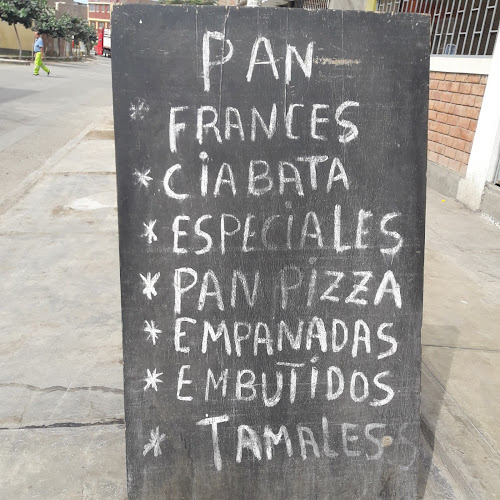 PAN
* FRANCES
* CIABATA
* ESPECIALES
* PAN PIZZA
* EMPANADAS
* EMBUTIDOS
* TAMALES